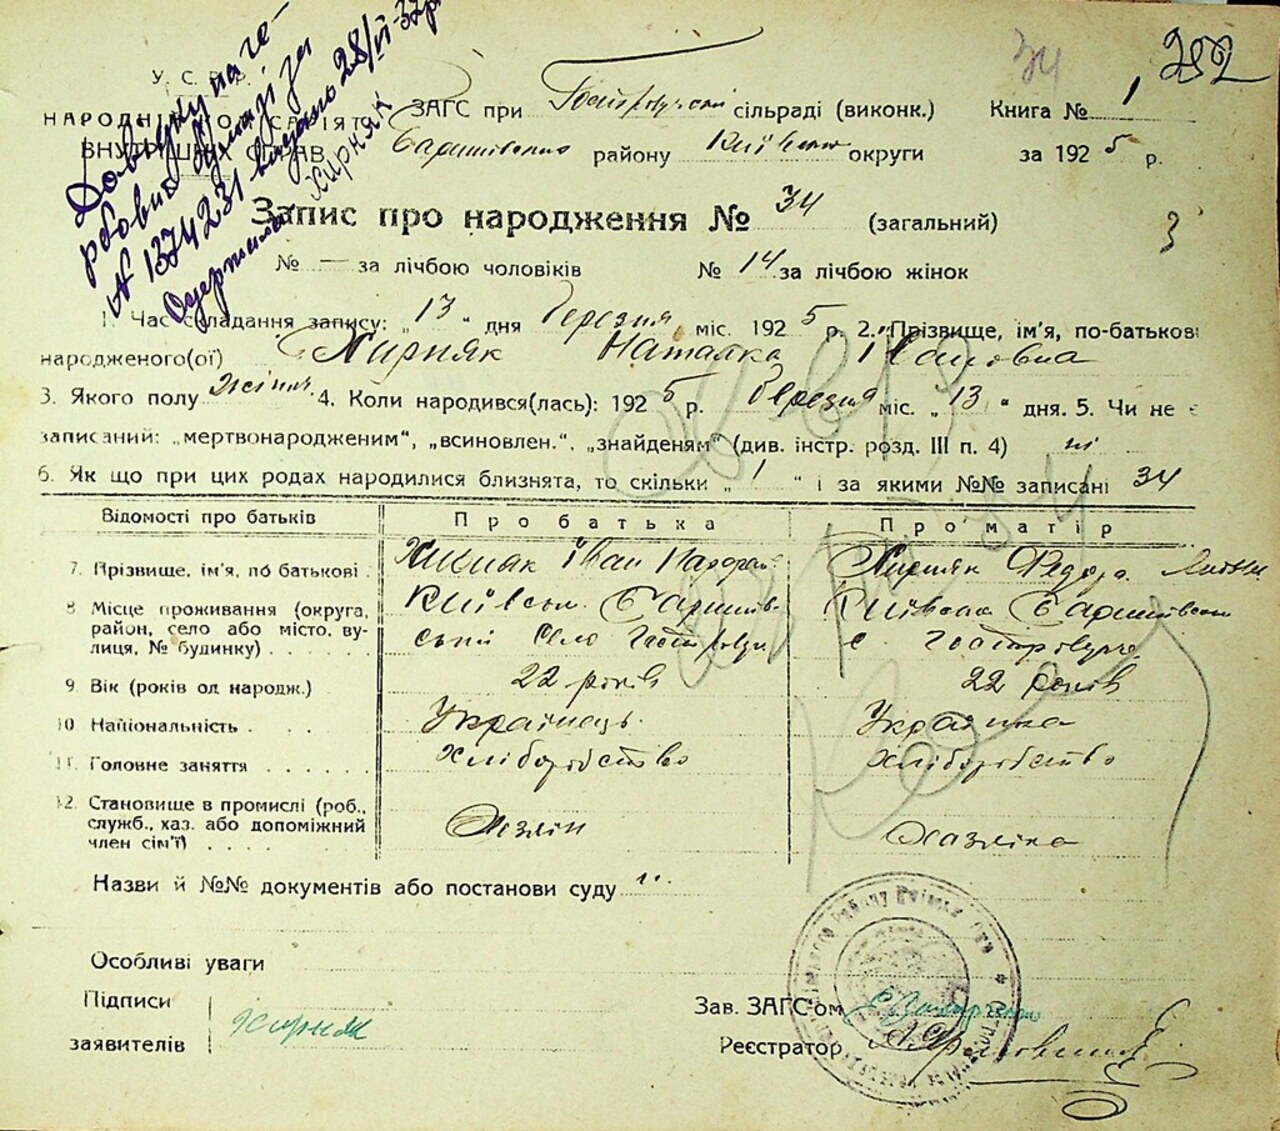 34 252
У. С. Р. Р.
НАРОДНІЙ КОМІСАРІЯТ
ВНУТРІШНІХ СПРАВ
Довідку на
гербовій бумазі за
№ 1374231 видано 28/VI-37р
Одержила Хирняк
ЗАГС при сільраді (виконк.) Книга № 1
району округи за 1925 р.
Запис про народження № 34 (загальний)
3
№ — за лічбою чоловіків № 14 за лічбою жінок
1. Час складання запису: „13“ дня березня міс. 1925 р. 2. Прізвище, ім'я, по-батькові
народженого(ої) Хирняк Наталка Івановна
3. Якого полу жіноч. 4. Коли народився(лась): 1925 р. березня міс. „13“ дня. 5. Чи не є
записаний: „мертвонародженим“, „всиновлен.“, „знайденям“ (див. інстр. розд. III п. 4) ні
6. Як що при цих родах народилися близнята, то скільки „1“ і за якими №№ записані 34
Відомості про батьків Про батька Про матір
7. Прізвище, ім'я, по батькові . Хирняк Іван Хирняк Федора
8 Місце проживання (округа, Київськ. Баришів- Київська Баришівськ
район, село або місто, ву- ський село с.
лиця, № будинку) . . . .
9. Вік (років од народж.) 22 років 22 років
10 Національність . . . Українець Українка
11. Головне заняття . . . . . . Хліборобство Хліборобство
12. Становище в промислі (роб., Хазяїн Хазяїка
служб., хаз. або допоміжний
член сім'ї) . . . .
Назви й №№ документів або постанови суду „
Особливі уваги
Підписи
заявителів Хирняк
Зав. ЗАГС'ом
Реєстратор